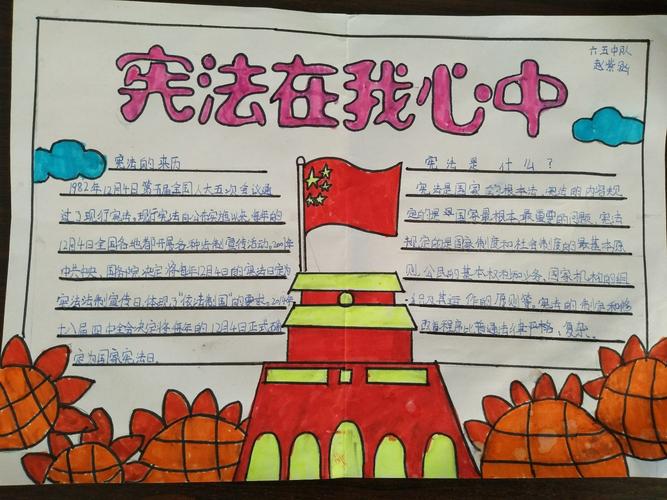 宪法在我心中
六五中队
宪法的来历
1982年12月4日第五届全国人大五次会议通
过了现行宪法。现行宪法自公布实施以来,每年的
12月4日全国各地都开展各种法制宣传活动。2001年
中共中央、国务院决定将每年12月4日的宪法日定为
宪法法制宣传日,体现了"依法制国"的要求。2014年
十八届四中全会决定将每年的12月4日正式确
定为国家宪法日。
宪法是什么?
宪法是国家的根本法,宪法的内容规
定的是国家最根本最重要的问题,宪法
规定的是国家制度和社会制度的最基本原
则,公民的基本权利和义务、国家机构的组
及其运作的原则等。宪法的制定和修
改程序比普通法律严格、复杂。